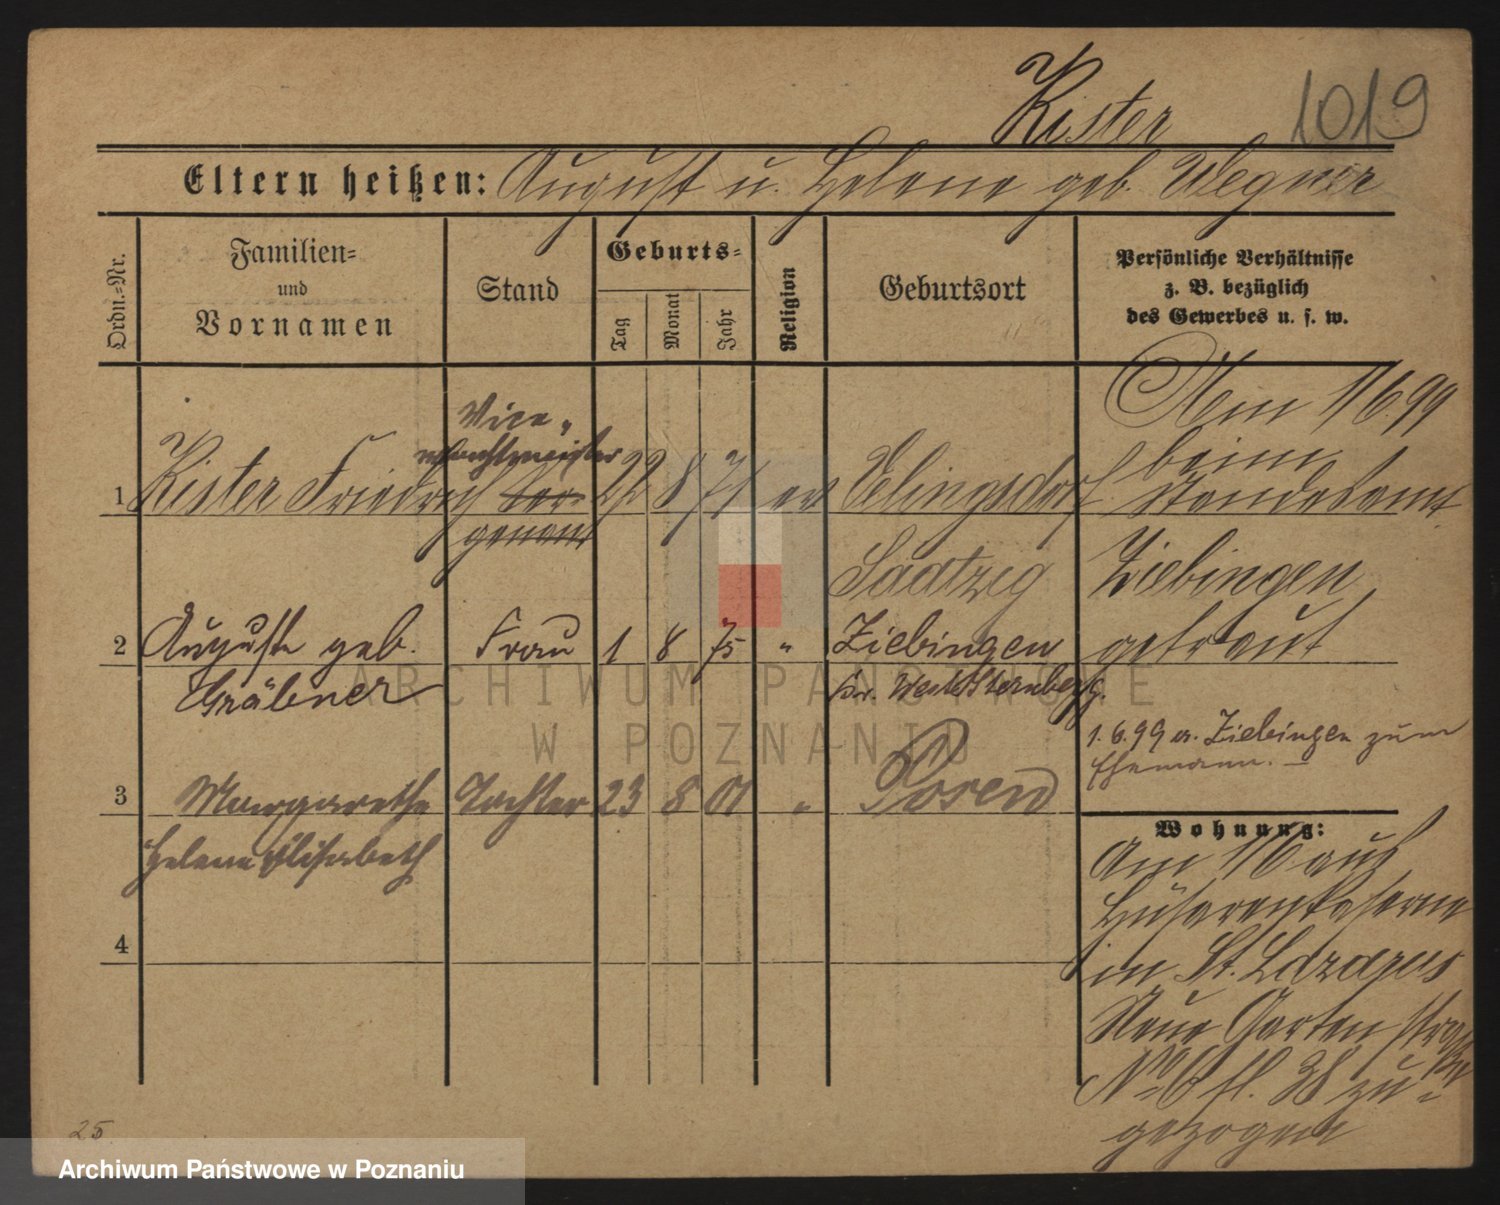 Kister 1019
Eltern heißen: August u. Helene geb. Wegner
Ordn.-Nr.
Familien- und Vornamen
Stand
Geburts-
Tag Monat Jahr
Religion
Geburtsort
Persönliche Verhältnisse
z. B. bezüglich
des Gewerbes u. s. w.
1 Kister Friedrich
Vice-
wachtmeister
Ser-
geant
22 8 71 ev
Saatzig
Am 1/6.99
beim
Standesamt
Ziebingen
getraut
2 Auguste geb. Frau 1 8 75 " Ziebingen
Gräbner
Kr. West Sternberg.
1.6.99 v. Ziebingen zum
Ehemann.
3 Margarethe Tochter 23 8 01 " Posen
Helene Elisabeth
4
Wohnung:
Am 1/6 aus
Husarenkaserne
in St. Lazarus
Neue Gartenstraße
No 6 fl. 38 zu-
gezogen
25
ARCHIWUM PAŃSTWOWE
W POZNANIU
Archiwum Państwowe w Poznaniu